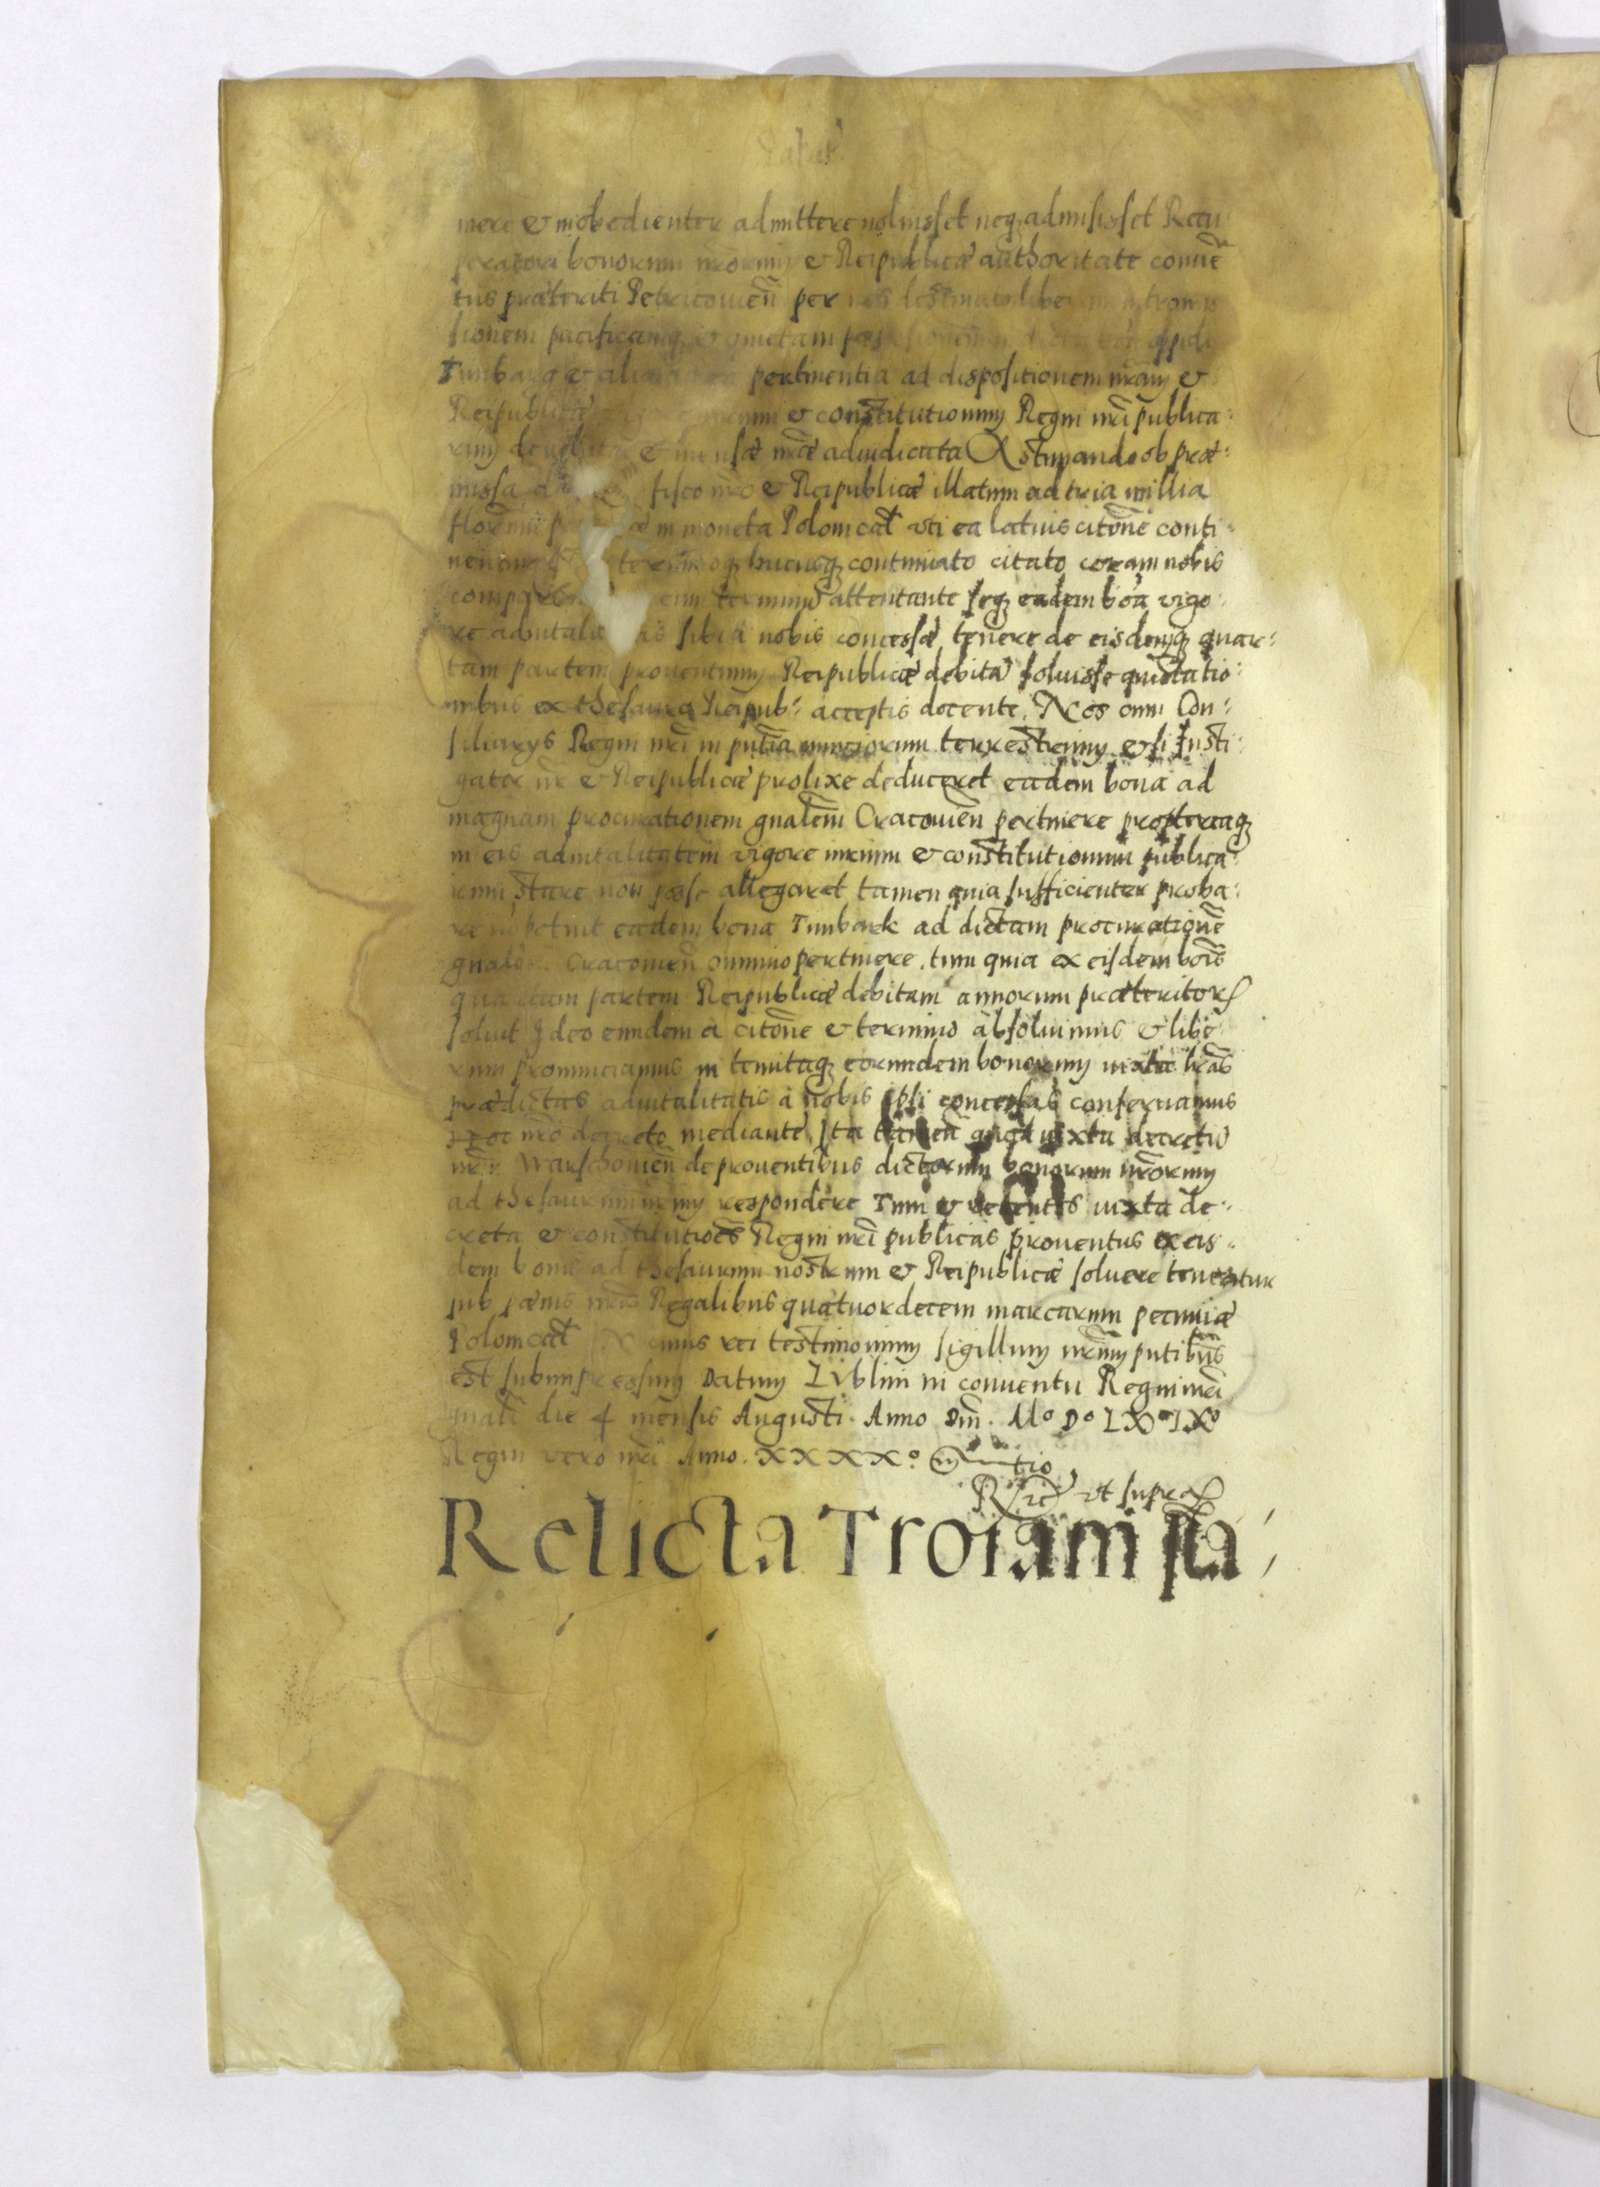 nere & inobedienter admittere noluisset neq admisisset Recu
peratori bonorum nr̃orum & Reipublicæ authoritate conuẽ
tus præteriti Petricouieñ per nos destinato liberam intromis
sionem pacificamq & quietam possessionem oppidi
Timbarg & alia pertinentia ad dispositionem nr̃am &
Reipublicæ & constitutionum Regni nr̃i publica:
rum deuoluta & mensæ nr̃æ adiudicata Æstimando ob præ:
missa fisco nr̃o & Reipublicæ illatum ad tria millia
floren in moneta Polonical̃ vti ea latius citõne conti:
nentur terminoq hucusq continuato citato coram nobis
terminũ attentante seq eadem bõa vigo:
re aduitalitatis sibi a nobis concessæ tenere de eisdemq quar:
tam partem prouentuum Reipublicæ debitã soluisse quietatio:
nibus ex thesauro Reipub: acceptis docente. Nos cum Con:
siliarys Regni nr̃i in pñtia nunciorum terrestrium etsi Insti:
gator nr̃ & Reipublicæ prolixe deduceret eadem bona ad
magnam procurationem gnalem̃ Cracouieñ pertinere proptereaq
in eis aduitalitatem vigore iurium & constitutionum publica:
rum stare non posse allegaret tamen quia sufficienter proba:
re nõ potuit eadem bona Timbark ad dictam procurationẽ
gnalẽ Cracouieñ omnino pertinere, tum quia ex eisdem bonis
quartam partem Reipublicæ debitam annorum præteritor
soluit Ideo eundem à citõne & termino absoluimus & libe:
rum pronunciamus in tenutaq eorundem bonorum iuxta lr̃as
prædictas aduitalitatis à nobis ipsi concessas conseruamus
Hoc nr̃o decreto mediante, Ita tamen quod iuxta decretũ
nr̃ Warschouieñ de prouentibus dictorum bonorum nr̃orum
ad thesaurum nr̃um respondere Tum & iuxta de:
creta & constitutiões Regni nr̃i publicas prouentus ex eis:
dem bonis ad thesaurum nostrum & Reipublicæ soluere teneatur
sub pœnis nr̃is Regalibus quatuordecem marcarum pecuniæ
Polonical̃ In cuius rei testimonium sigillum nr̃um pñtibus
est subimpressum Datum Lublini in conuentu Regni nr̃i
gnali die 4 mensis Augusti. Anno Dm̃. Mº Dº LXºIXº
Regni vero nr̃i Anno. XXXXº
Rtio vt supra
Relicta Troiam sta: